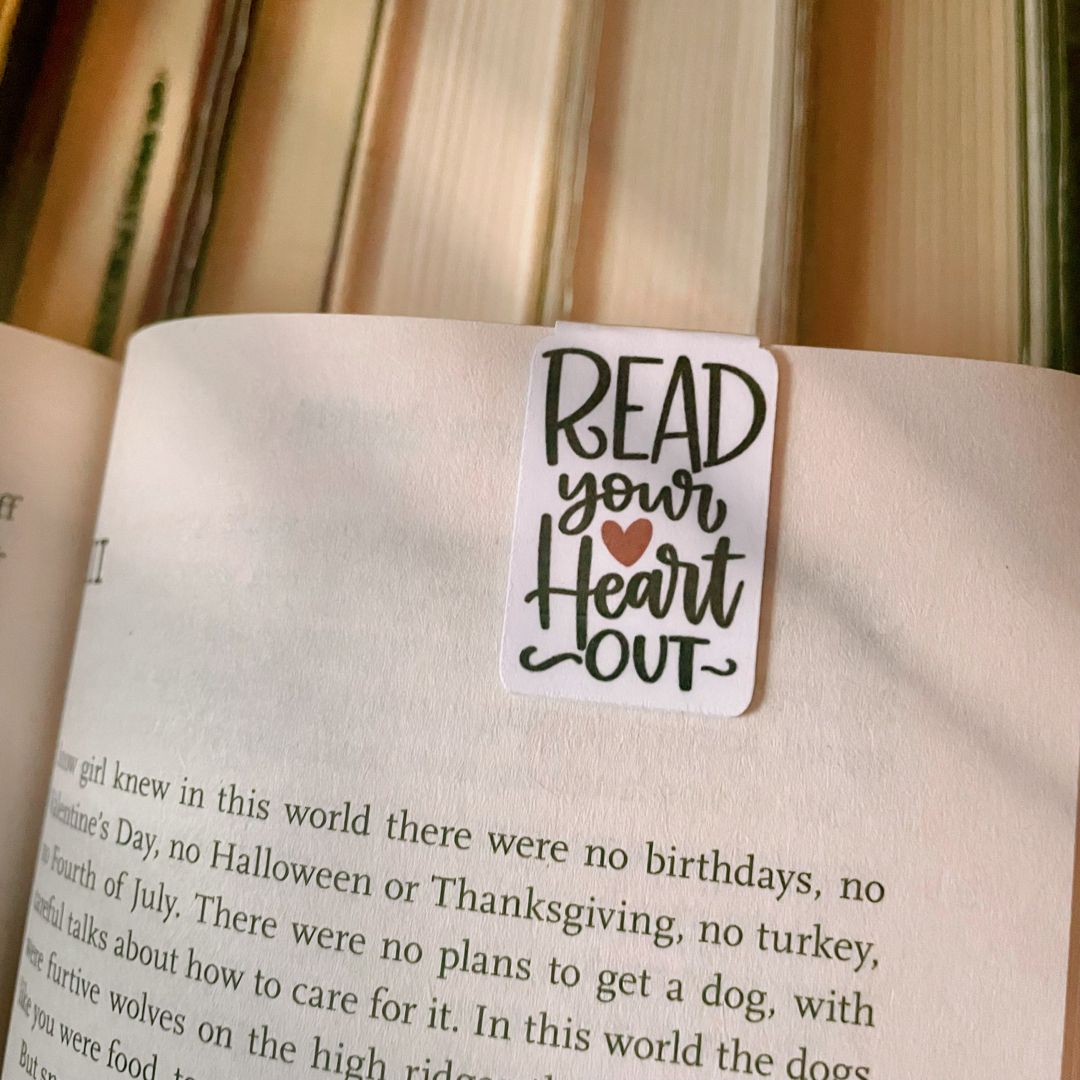 ff
READ
your
Heart
OUT
snow girl knew in this world there were no birthdays, no
Valentine's Day, no Halloween or Thanksgiving, no turkey,
no Fourth of July. There were no plans to get a dog, with
careful talks about how to care for it. In this world the dogs
were furtive wolves on the high
like you were food
But